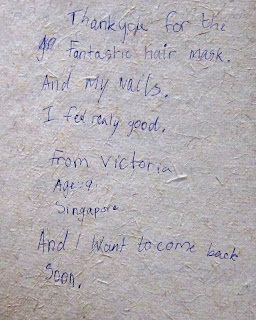 Thankyou for the
Fantastic hair mask.
And my Nails.
I feel realy good.
From Victoria
Age: 9
Singapore
And I Want to come back
Soon.